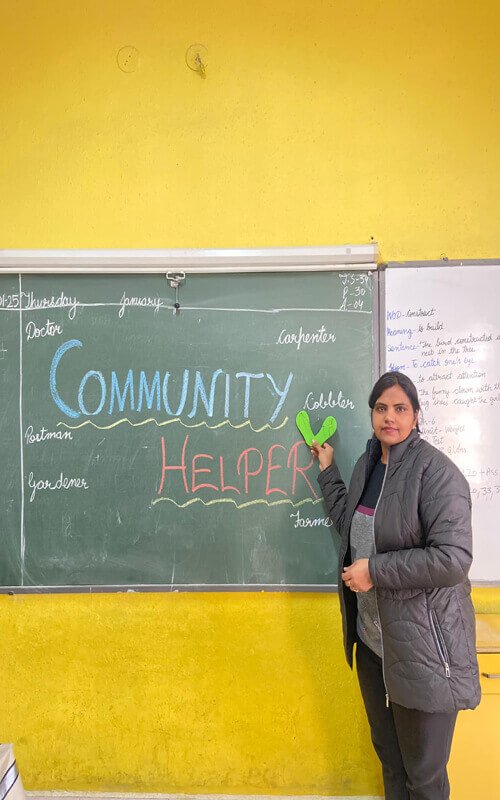 01-25 Thursday January
T.S-34
P-30
A-04
Doctor
Carpenter
COMMUNITY
Cobbler
Postman
HELPER
Gardener
Farme
WOD-Construct
Meaning- to build
Sentence- The bird constructed a
nest in the tree.
Idiom- To catch one's eye
to attract attention
The funny clown with